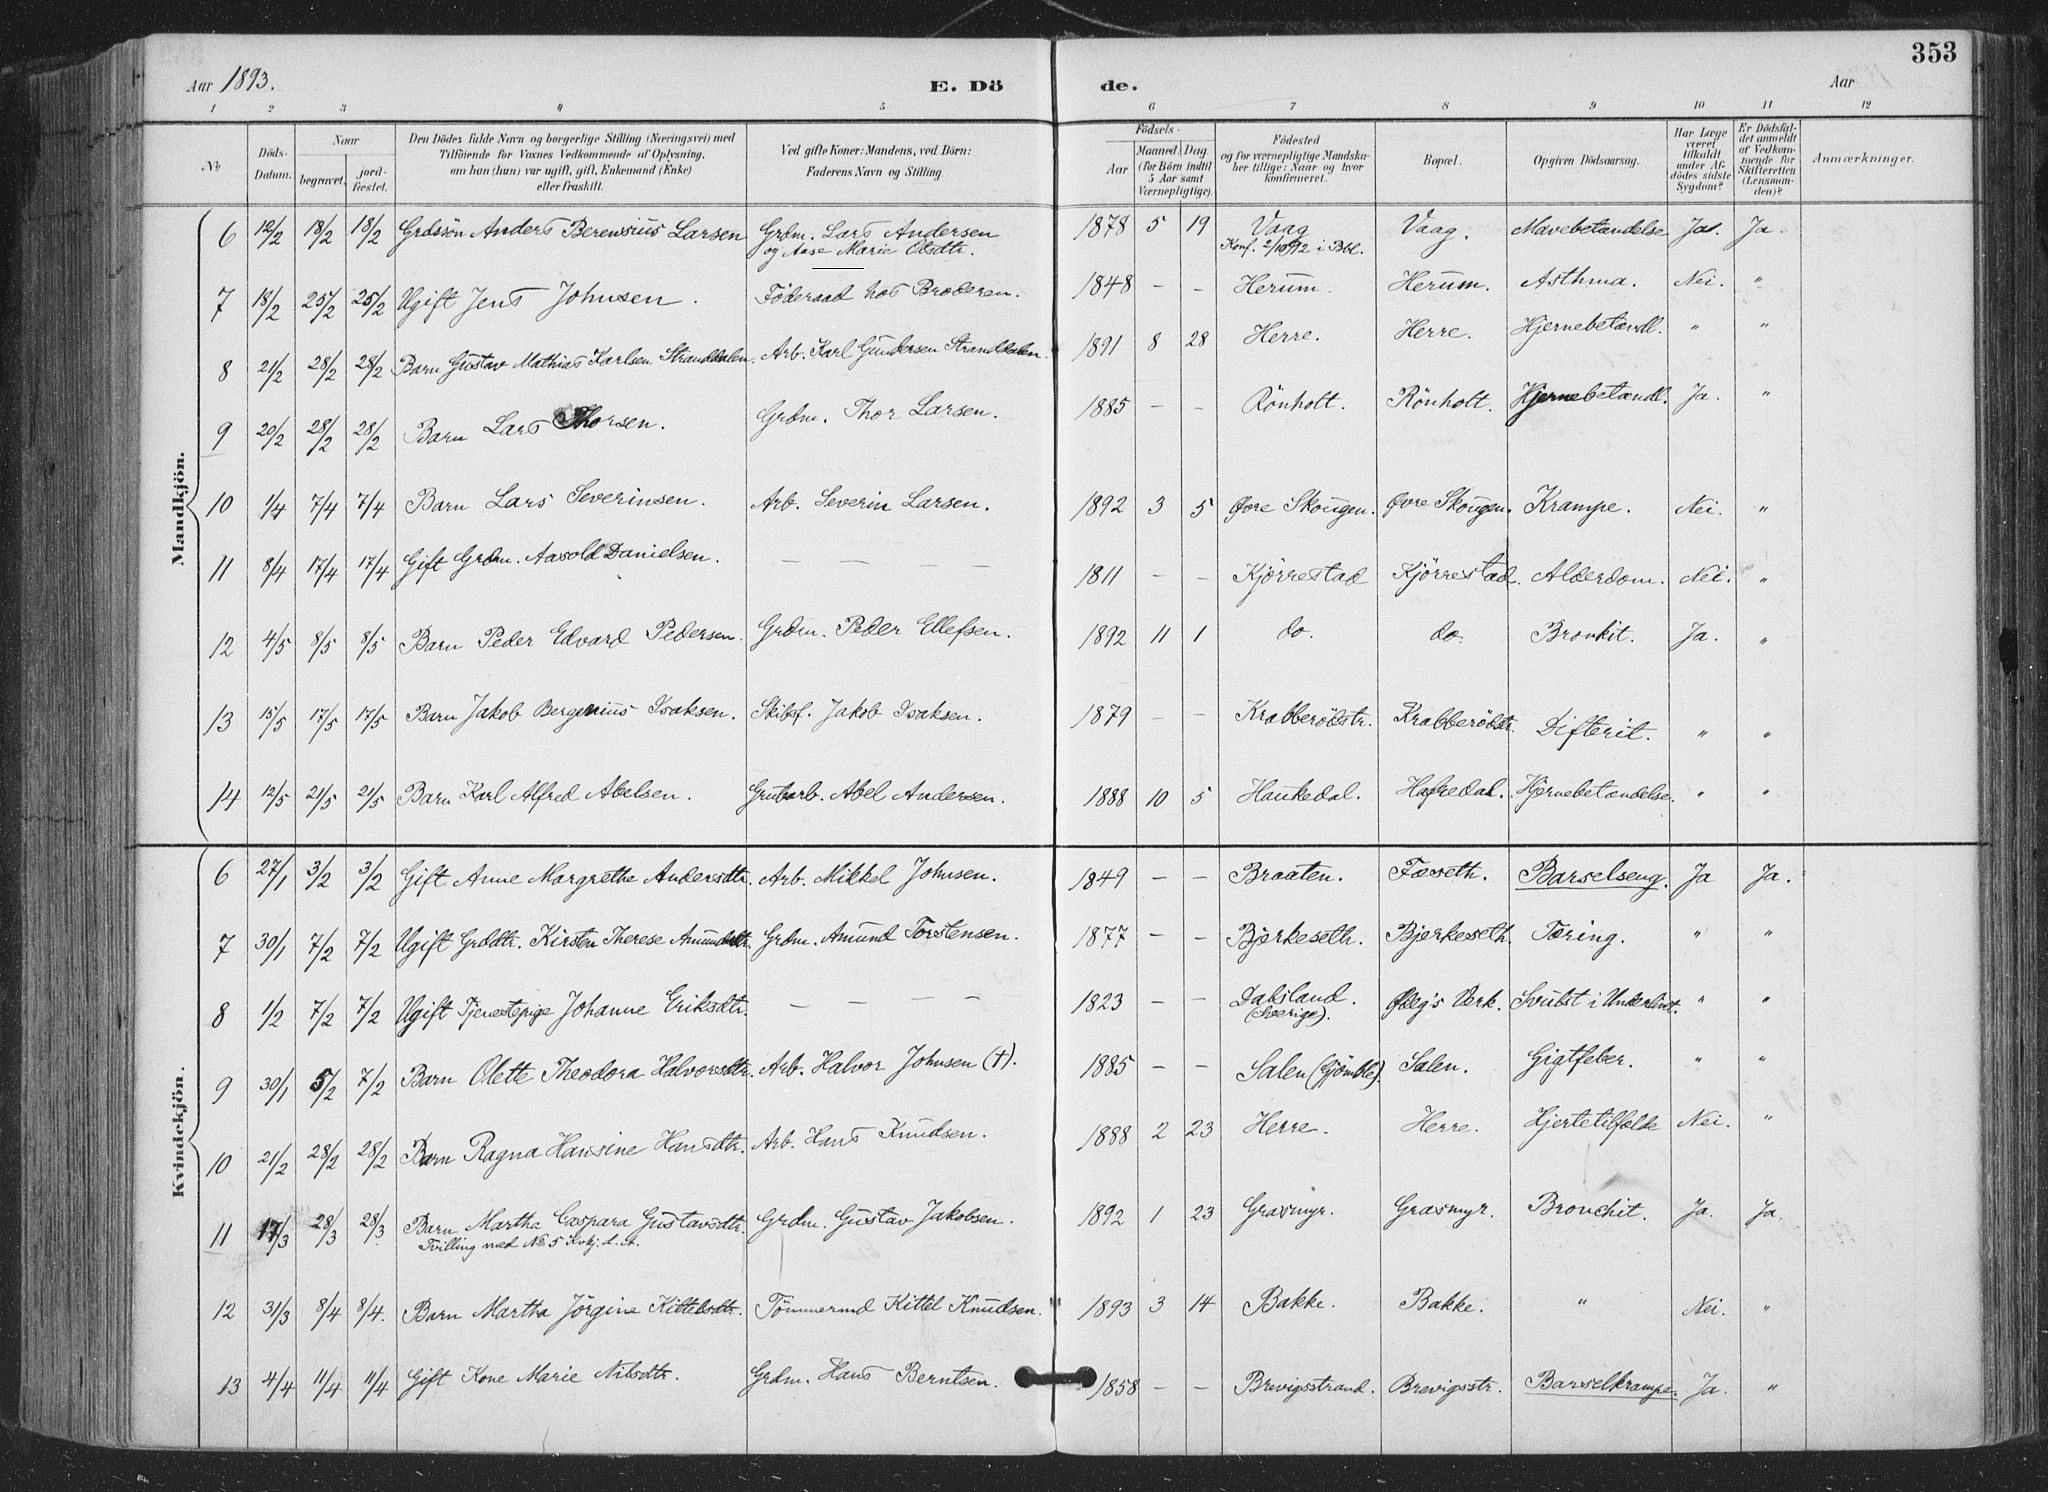 353
Aar 1893. E. Dö de. Aar
1 2 3 4 5 6 7 8 9 10 11 12
No Döds-Datum. Naar begravet. jord-fæstet. Den Dödes fulde Navn og borgerlige Stilling (Næringsvei) med Tilföiende for Voxnes Vedkommende af Oplysning, om han (hun) var ugift, gift, Enkemand (Enke) eller fraskilt. Ved gifte Koner: Mandens, ved Börn: Faderens Navn og Stilling. Födsels- Aar Maaned. Dag. (for Börn indtil 5 Aar samt Værnepligtige). Födested og for værnepligtige Mandska-ber tillige: Naar og hvor konfirmeret. Bopæl. Opgiven Dödsaarsag. Har Læge været tilkaldt under Af-dödes sidste Sygdom? Er Dödsfal-det anmeldt af Vedkom-mende for Skifteretten (Lensman-den)? Anmærkninger.
Mandkjön.
6 12/2 18/2 18/2 Grdssön Anders Berensius Larsen Grdm. Lars Andersen 1878 5 19 Vaag Vaag. Mavebetændelse Ja. Ja.
og Aase Marie Olsdtr. Konf. 2/10 92 i Bbl.
7 18/2 25/2 25/2 Ugift Jens Johnsen. Föderaad hos Broderen. 1848 - - Herum. Herum. Asthma. Nei. "
8 21/2 28/2 28/2 Barn Gustav Mathias Karlsen Stranddalen. Arb. Karl Gundersen Stranddalen. 1891 8 28 Herre. Herre. Hjernebetændl. " "
9 20/2 28/2 28/2 Barn Lars Thorsen. Grdm. Thor Larsen. 1885 - - Rönholt. Rönholt. Hjernebetændl. Ja. "
10 1/4 7/4 7/4 Barn Lars Severinsen. Arb. Severin Larsen. 1892 3 5 Øvre Skougen. Øvre Skougen. Krampe. Nei. "
11 8/4 17/4 17/4 Gift Grdm. Aasold Danielsen. - - - - 1811 - - Kjörrestad Kjörrestad. Alderdom. Nei. "
12 4/5 8/5 8/5 Barn Peder Edvard Pedersen. Grdm. Peder Ellefsen. 1892 11 1 do. do. Bronkit. Ja. "
13 15/5 17/5 17/5 Barn Jakob Bergenius Isaksen. Skibsf. Jakob Isaksen. 1879 - - Krabberödstr. Krabberödstr. Difterit. " "
14 12/5 21/5 21/5 Barn Karl Alfred Abelsen. Grubarb. Abel Andersen. 1888 10 5 Haukedal. Hafredal. Hjernebetændelse. " "
Kvindekjön.
6 27/1 3/2 3/2 Gift Anne Margrethe Andersdtr. Arb. Mikkel Johnsen. 1849 - - Braaten. Fæseth. Barselseng. Ja Ja.
7 30/1 7/2 7/2 Ugift Grddtr. Kirsten Therese Amundsdtr. Grdm. Amund Torstensen. 1877 - - Bjerkeseth. Bjerkeseth. Tæring. " "
8 1/2 7/2 7/2 Ugift Tjenestepige Johanne Eriksdtr. - - - - 1823 - - Dalsland. Ødeg's Verk. Svulst i Underlivet. " "
(Sverige).
9 30/1 5/2 7/2 Barn Olette Theodora Halvorsdtr. Arb. Halvor Johnsen (†). 1885 - - Salen (Gjömble). Salen. Gigtfeber. " "
10 21/2 28/2 28/2 Barn Ragna Hansine Hansdtr. Arb. Hans Knudsen. 1888 2 23 Herre. Herre. Hjertetilfælde Nei. "
11 17/3 28/3 28/3 Barn Martha Caspara Gustavsdtr. Grdm. Gustav Jakobsen. 1892 1 23 Grasmyr. Grasmyr. Bronchit. Ja. Ja.
Tvilling med No 5 Kvkj. d. A.
12 31/3 8/4 8/4. Barn Martha Jörgine Kittelsdtr. Tömmermd Kittel Knudsen. 1893 3 14 Bakke. Bakke. " Nei. "
13 4/4 11/4 11/4 Gift Kone Marie Nilsdtr. Grdm. Hans Berntsen. 1858 - - Brevigsstrand. Brevigsstr. Barselkrampe. Ja. "